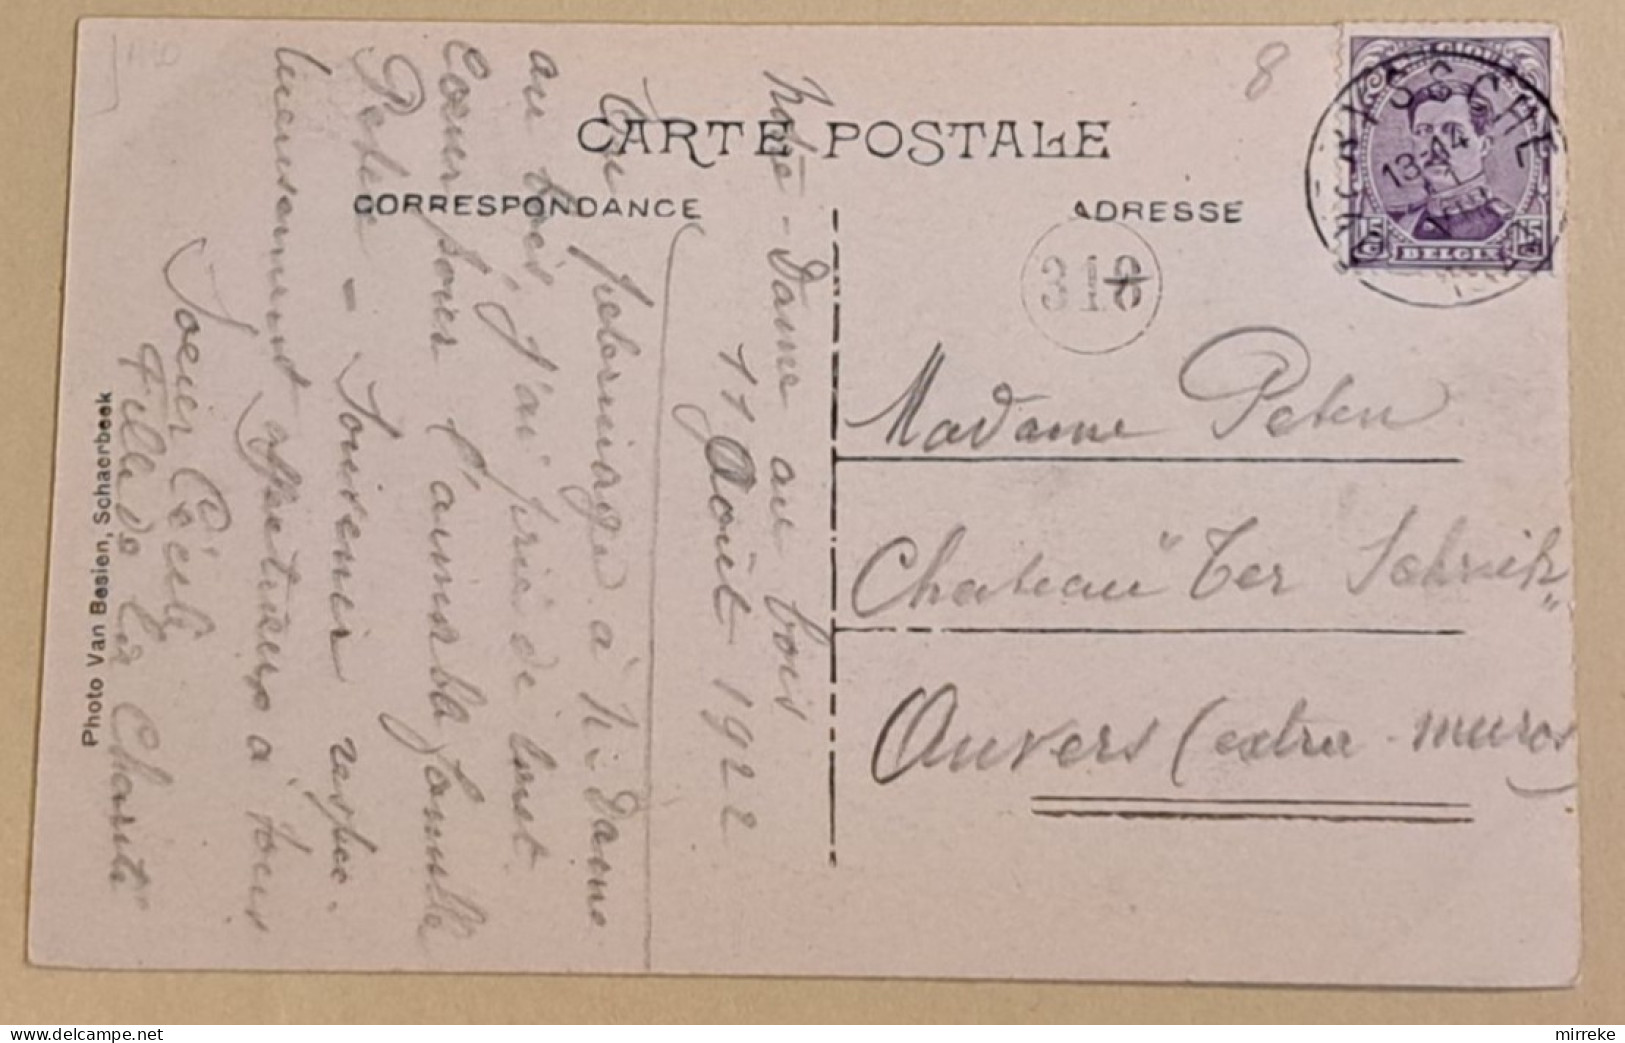 CARTE POSTALE
CORRESPONDANCE
ADRESSE
Notre-Dame au bois
11 Août 1922
En pelerinage à N. Dame
au bois, j'ai prié de tout
Coeur pour l'aimable famille
Peten - Souvenir respec-
tueusement affectueux à tous
Soeur Cécile
Fille de la Charité
Photo Van Besien, Schaerbeek
8
13-14
BELGIE
15
15
BELGIQUE
Madame Peten
Chateau "Ter Schriek"
Anvers (extra-muros
mirreke